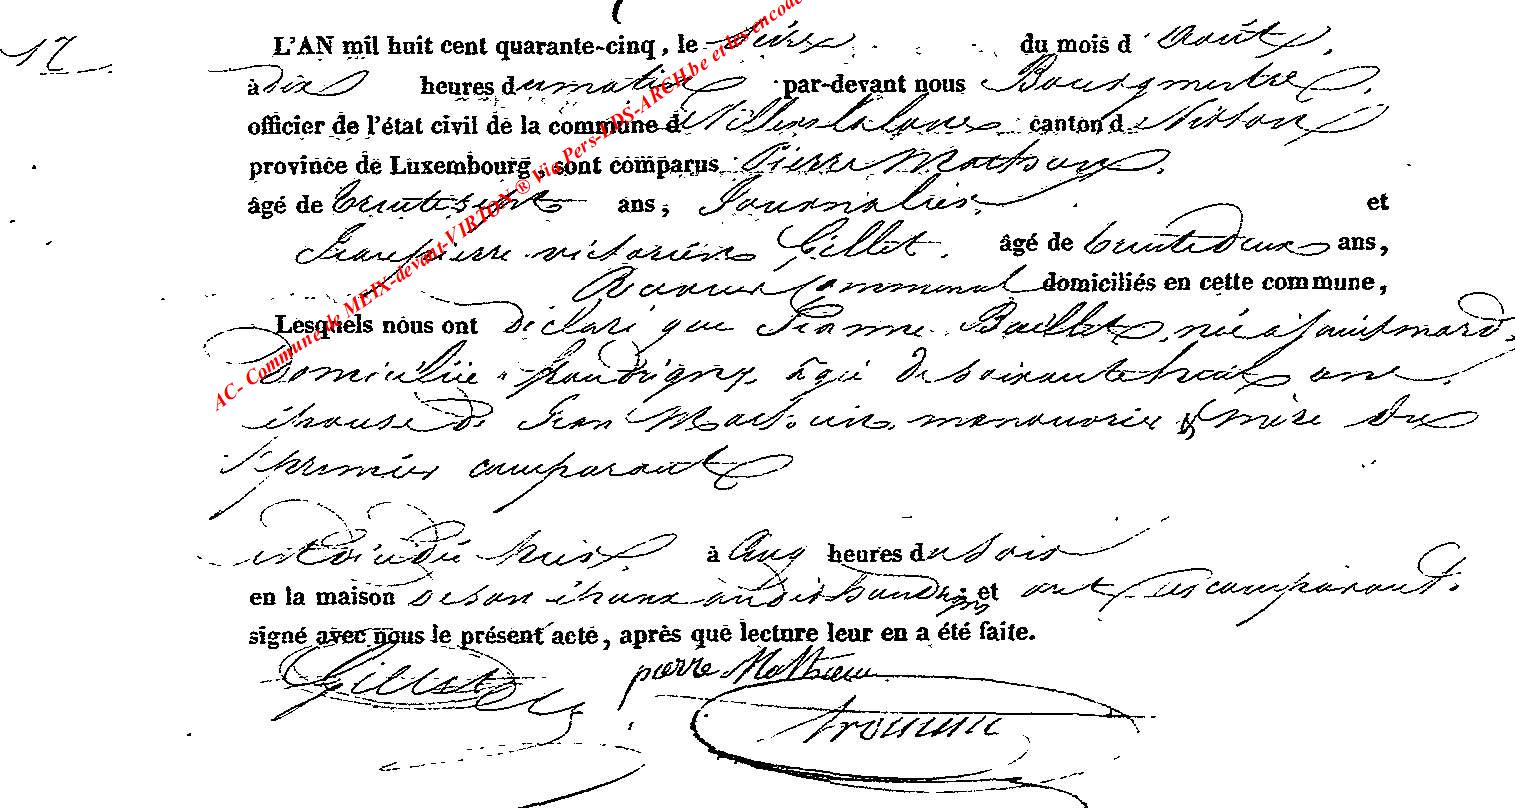 17
L'AN mil huit cent quarante-cinq, le du mois d'Août,
à dix heures du matin par-devant nous Bourgmestre,
officier de l'état civil de la commune de Villers la loue canton de Virton
province de Luxembourg, sont comparus Pierre Mathieu,
âgé de ans, Journalier, et
Jean pierre victorien Gillet, âgé de trente deux ans,
Receveur Communal domiciliés en cette commune,
Lesquels nous ont déclaré que Jeanne Baillet, née à saint mard,
Domiciliée à houdrigny, âgée de soixante huit ans,
épouse de Jean Mathieu, manouvrier & mère du
premier comparant
est décédée hier, à cinq heures du soir
en la maison de son époux audit houdrigny et ont les comparants
signé avec nous le présent acte, après que lecture leur en a été faite.
Gillet pierre Mathieu
AC- Commune de MEIX-devant-VIRTON ® Via Pers-EDS-ARCH.be et les encode